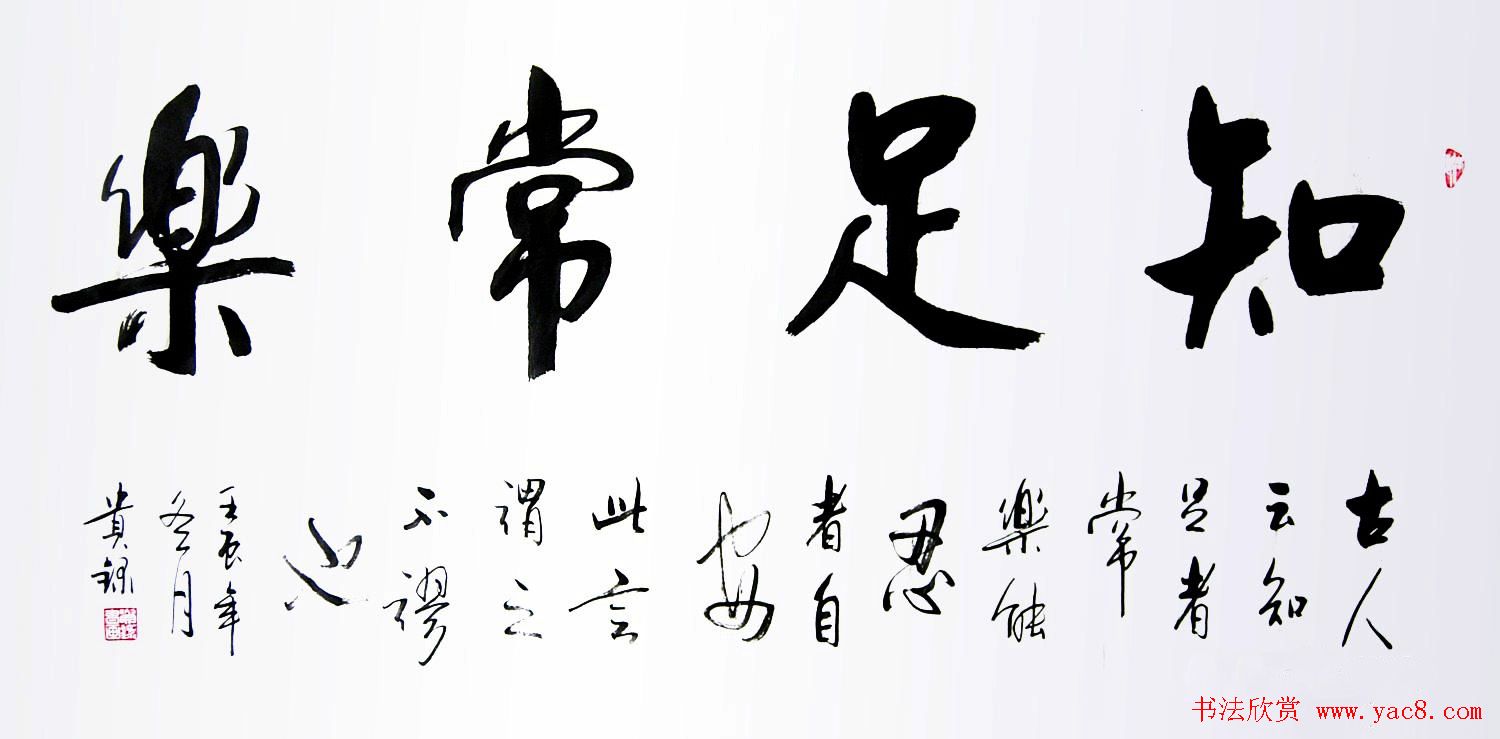 知足常樂
古人
云知
足者
常
樂能
忍
者自
安
此言
謂之
不謬
也
壬辰年
冬月
貴銘
书法欣赏 www.yac8.com